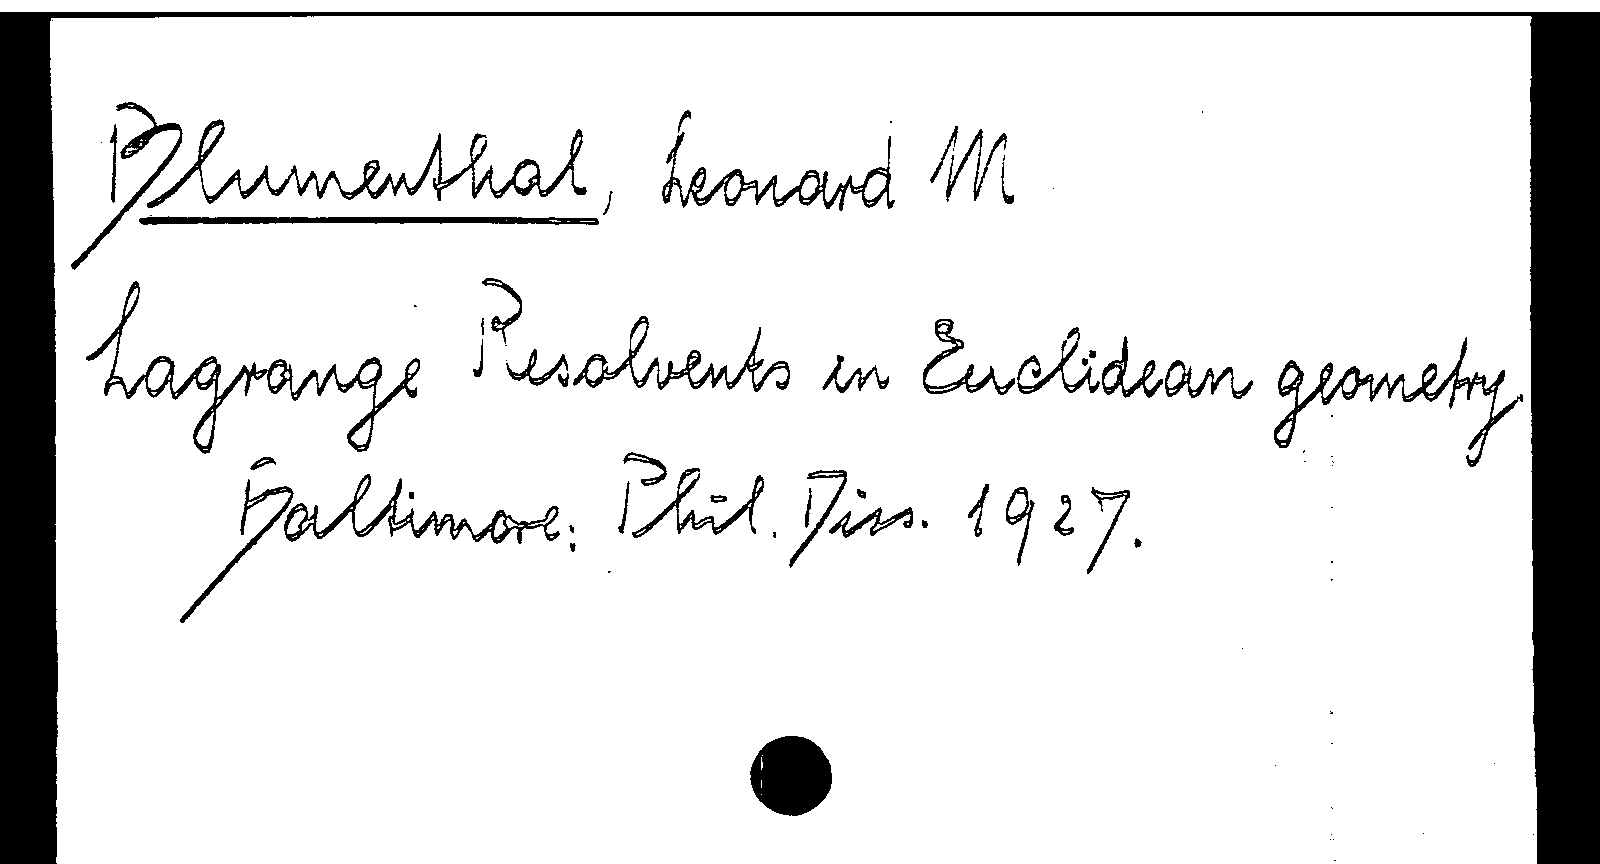 Blumenthal, Leonard M
Lagrange Resolvents in Euclidean geometry.
Baltimore: Phil. Diss. 1927.